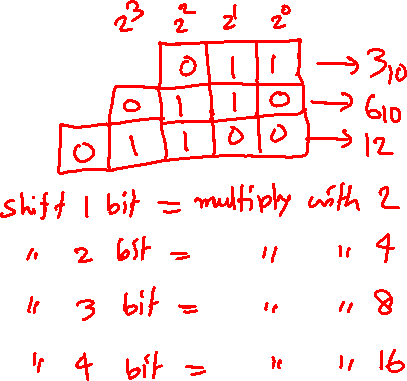 2³ 2² 2¹ 2⁰
0 1 1 → 3₁₀
0 1 1 0 → 6₁₀
0 1 1 0 0 → 12
shift 1 bit = multiply with 2
" 2 bit = " " 4
" 3 bit = " " 8
" 4 bit = " " 16